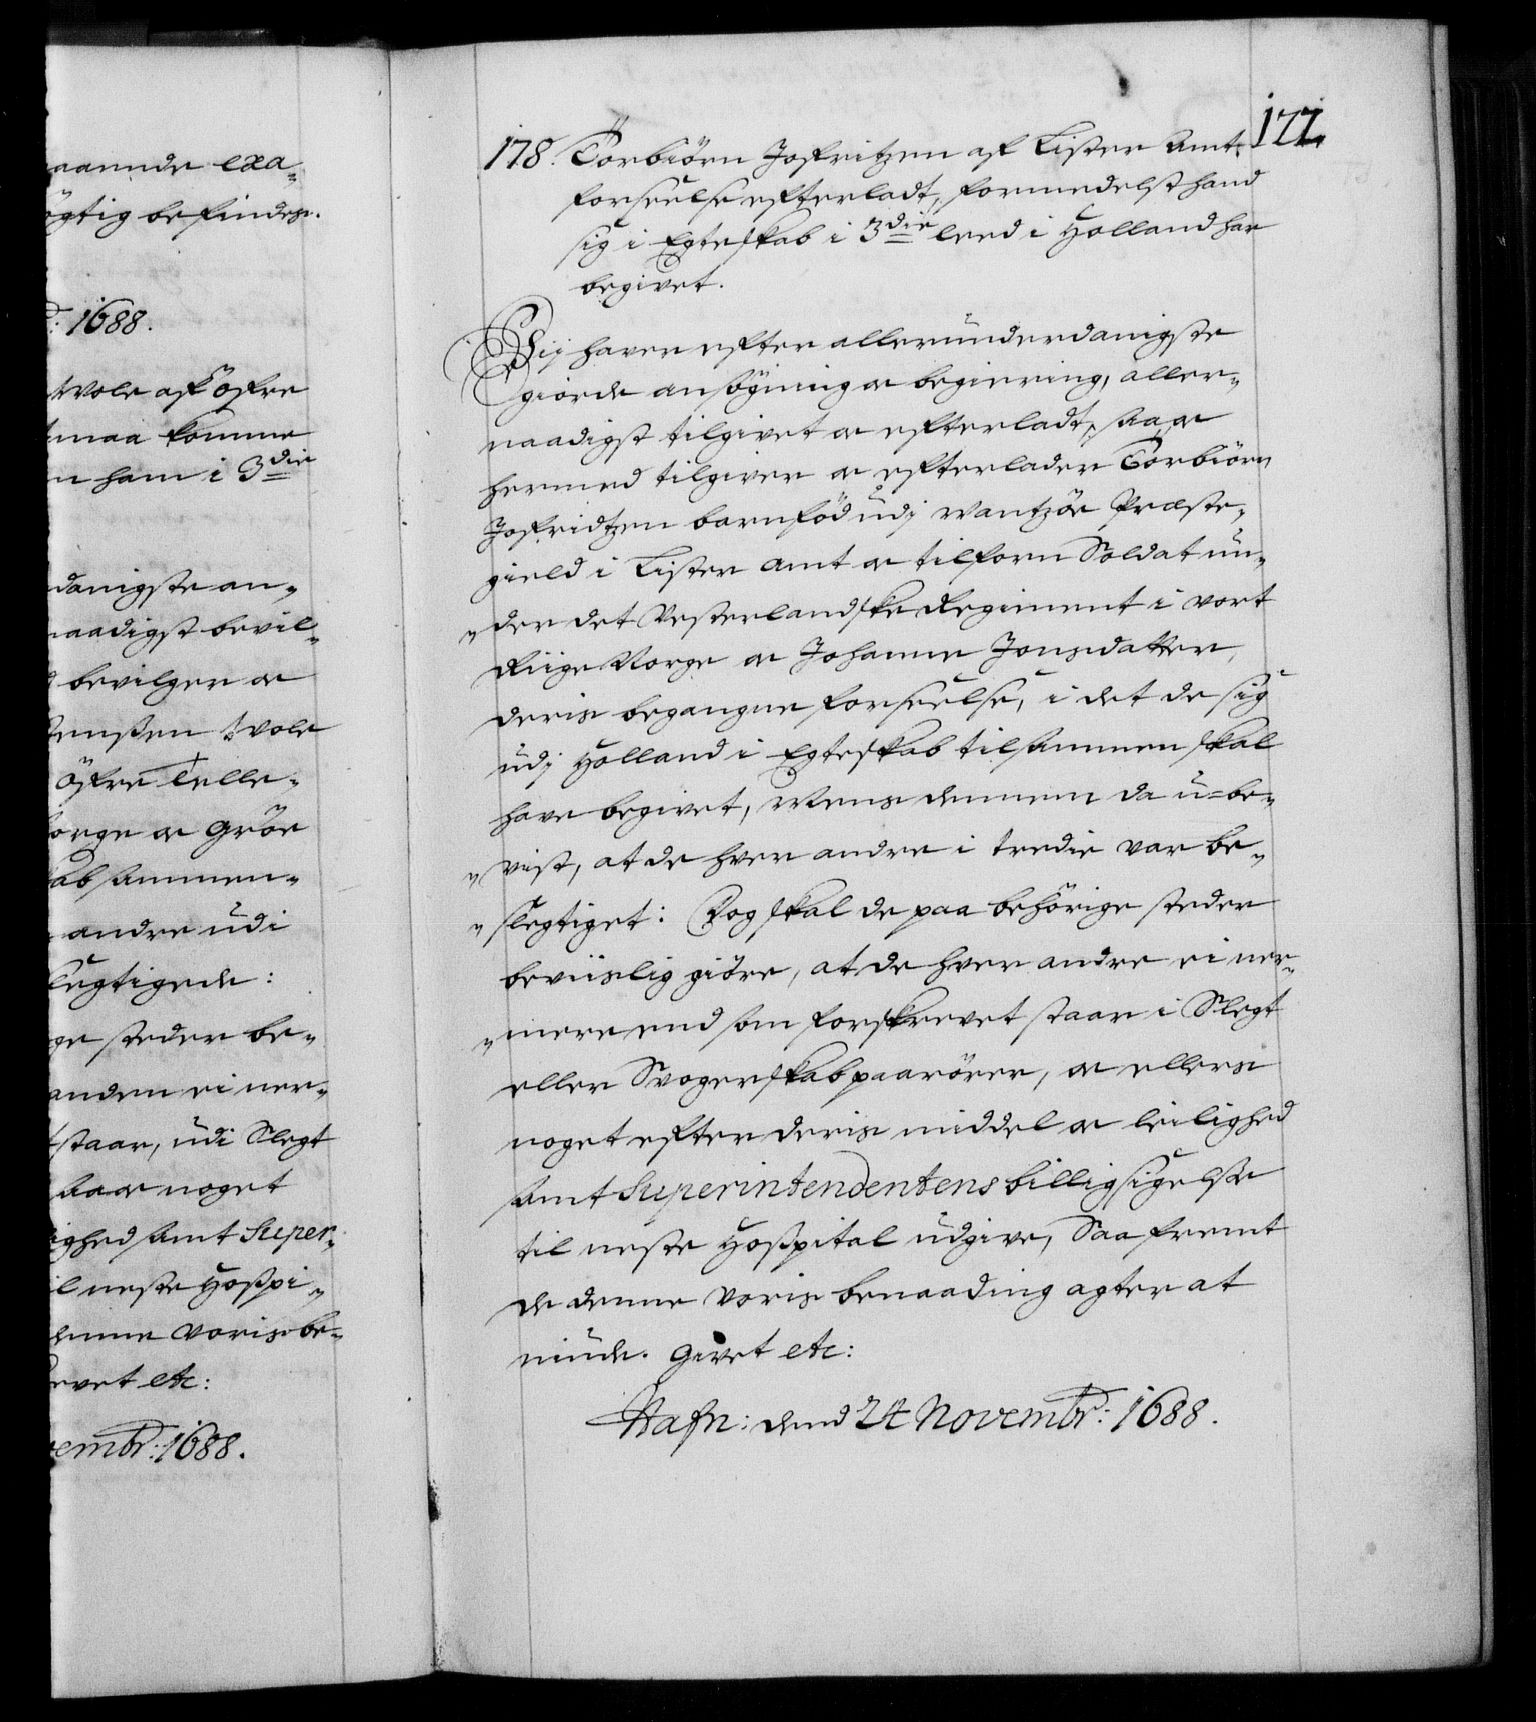 aannde exa-
ögtig befindes.
: 1688.
Wole aff Öfre
maa komme
n ham i 3die
danigste an-
naadigst bevil-
bevilger oc
Wole
Öfre Telle-
orge oc Gröe
kab sammen-
andre udi
legtigede:
ge steder be-
anden ei ner-
staar, udi Slegt
saa oc noget
ighed samt Super-
il neste Hospi-
denne voris be-
evet etc:
embr: 1688.
177.
178. Torbiörn Joffritzen af Lister Amt
forseelse efterladt, formedelst hand
sig i Egteskab i 3die leed i Holland har
begivet.
Vij haver efter allerunderdanigste
giorde ansögning oc begiering, aller-
naadigst tilgivet oc efterladt, saa oc
hermed tilgiver oc efterlader Torbiörn
Joffridtzen barnfød udj Wantzöe Præste-
gield i Lister Amt oc tilforn Soldat un-
der det Vesterlandske Regiment i vort
Riige Norge oc Johanne Jonsdatter,
deris begangne forseelse, i det de sig
udj Holland i Egteskab tilsammen skal
have begivet, Mens dennem da u-be-
vist, at de hver andre i tredie var be-
slegtiget: Dog skal de paa behörige steder
beviislig giöre, at de hver andre ei ner-
mere end som forskrevet staar i Slegt
eller Svogerskab paarörer, oc ellers
noget efter deris middel oc leilighed
samt Superintendentens billig sigelse
til neste Hospital udgive, Saa fremt
de denne voris benaading agter at
niude. Givet etc:
Hafn: dend 24 Novembr: 1688.